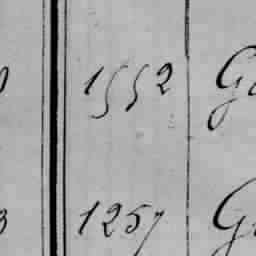 1552 G
1257 G